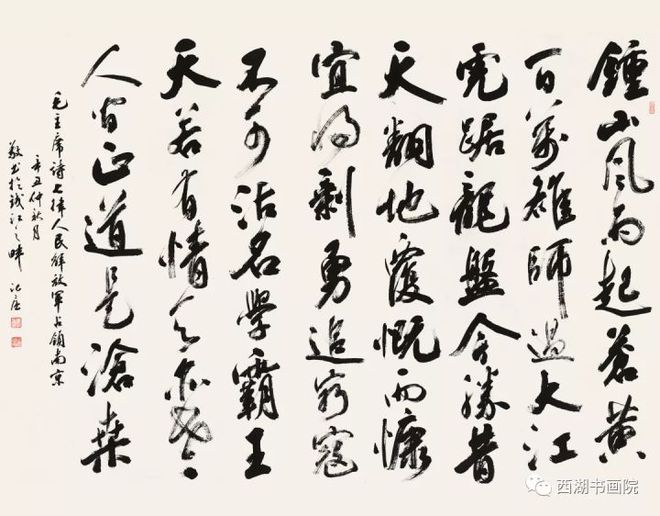 鍾山風雨起蒼黃
百萬雄師過大江
虎踞龍盤今勝昔
天翻地覆慨而慷
宜將剩勇追窮寇
不可沽名學霸王
天若有情天亦老
人間正道是滄桑
毛主席詩七律人民解放軍占領南京
辛丑仲秋月
敬書於錢江之畔
西湖书画院